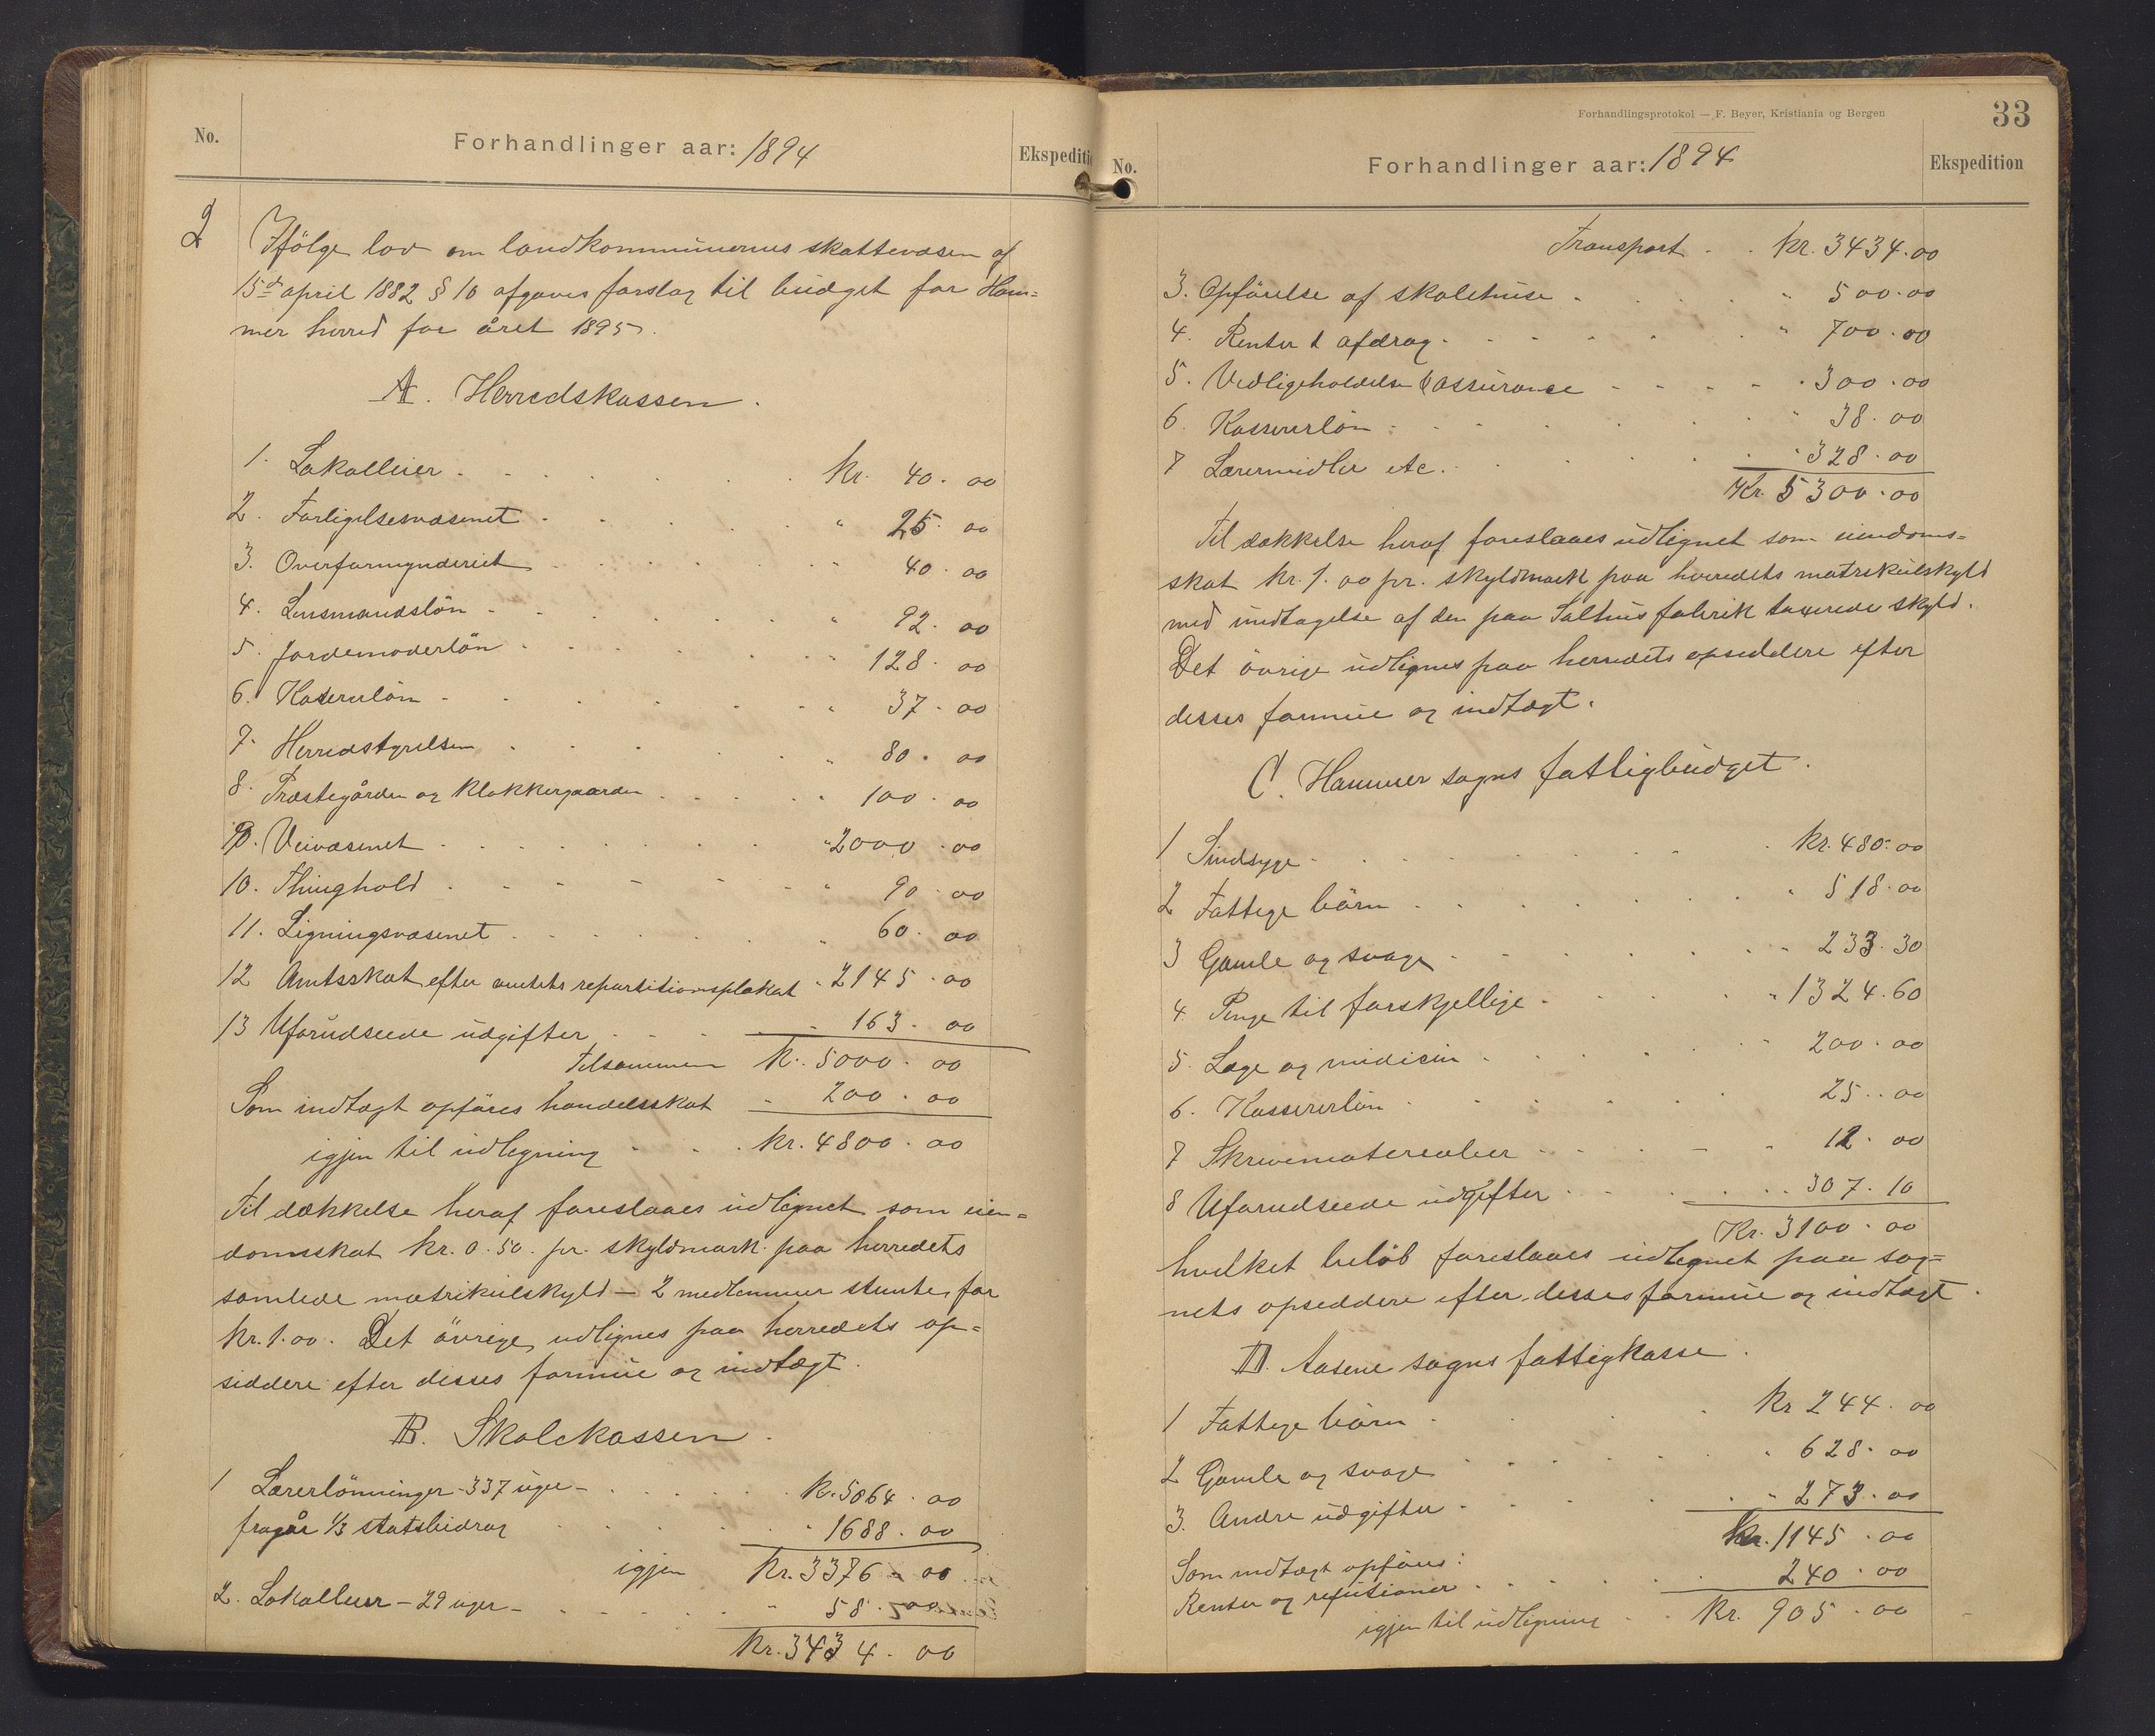 No.
Forhandlinger aar: 1894
Ekspediti
2
Ifölge lov om landkommunernes skattevæsen af
15de april 1882 § 10 afgaves forslag til budget for Ham=
mer herred for året 1895.
A. Herredskassen.
1. Lokalleier . . . . . . kr. 40. 00
2. Forligelsesvæsenet . . . . . " 25. 00
3. Overformynderiet . . . . . " 40. 00
4. Lensmandslön . . . . . " 92. 00
5. Jordemoderlön . . . . . " 128. 00
6. Kassererlön . . . . . " 37. 00
7. Herredstyrelsen . . . . . " 80. 00
8. Præstegården og Klokkergaarden . . . . " 100. 00
9. Veivæsenet . . . . . " 2000. 00
10. Thinghold . . . . . " 90. 00
11. Ligningsvæsenet . . . . . " 60. 00
12 Amtsskat efter amtets repartitionsplakat " 2145. 00
13 Uforudseede udgifter . . . . 163. 00
Tilsammen K. 5000. 00
Som indtægt opföres handelsskat - 200. 00
igjen til udlegning . . . kr. 4800. 00
Til dækkelse heraf foreslaaes udlignet som eien=
domsskat kr. 0.50. pr. skyldmark paa herredets
samlede matrikulskyld - 2 medlemmer stemte for
kr. 1.00. Det övrige udlignes paa herredets op=
siddere efter disses formue og indtægt.
B. Skolekassen.
1 Lærerlönninger - 337 uger - . . . . K. 5064. 00
fragår 1/3 statsbidrag . . . . " 1688. 00
igjen kr. 3376. 00
2. Lokalleier - 29 uger - . . . . " 58. 00
kr. 3434. 00
Forhandlingsprotokol — F. Beyer, Kristiania og Bergen
33
No.
Forhandlinger aar: 1894
Ekspedition
Transport . . kr. 3434. 00
3. Opförelse af skolehuse . . . . " 500. 00
4. Renter & afdrag . . . . . " 700. 00
5. Vedligeholdelse & assurance . . . . 300. 00
6. Kassererlön . . . . . " 38. 00
7 Lærermidler etc. . . . . . " 328. 00
Kr. 5300. 00
Til dækkelse heraf foreslaaes udlignet som eiendoms=
skat kr. 1.00 pr. skyldmark paa herredets matrikulskyld
med undtagelse af den paa Salhus fabrik taxerede skyld.
Det övrige udlignes paa herredets opsiddere efter
disses formue og indtægt.
C. Hammer sogns fattigbudget.
1 Sindsyge . . . . . . kr. 480. 00
2 Fattige börn . . . . . . " 518. 00
3 Gamle og svage . . . . . " 233. 30
4. Penge til forskjellige . . . . " 1324. 60
5. Læge og midicin . . . . . " 200. 00
6. Kassererlön . . . . . 25. 00
7 Skrivematerealier . . . . . 12. 00
8 Uforudseede udgifter . . . . . 307. 10
Kr. 3100. 00
hvilket belöb foreslaaes udlignet paa sog=
nets opsiddere efter disses formue og indtægt.
D. Aasene sogns fattigkasse.
1 Fattige börn . . . . kr 244. 00
2 Gamle og svage . . . . . " 628. 00
3. Andre udgifter . . . . . " 273. 00
kr. 1145. 00
Som indtægt opföres:
Renter og refusioner . . . . . 240. 00
igjen til udligning . . kr. 905. 00